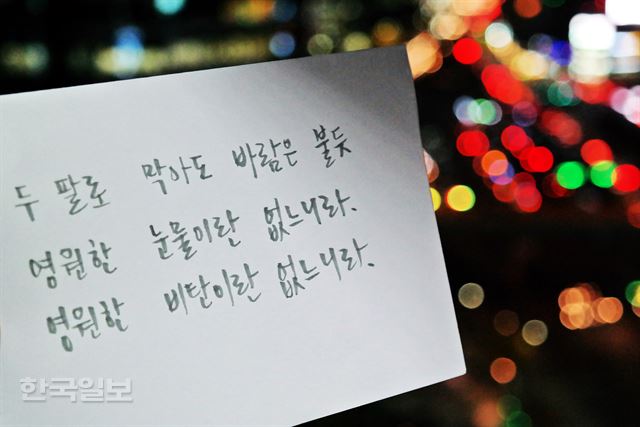 두 팔로 막아도 바람은 불듯
영원한 눈물이란 없느니라.
영원한 비탄이란 없느니라.
한국일보